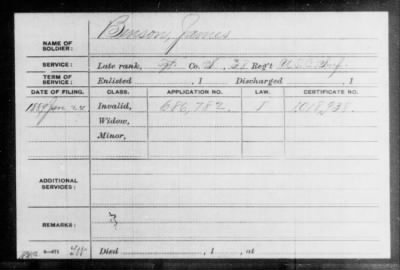 Benson, James
NAME OF SOLDIER:
SERVICE: Late rank, Co. 28 Reg't U.S.C. Inf.
TERM OF SERVICE: Enlisted , 1 Discharged , 1
DATE OF FILING. CLASS. APPLICATION NO. LAW. CERTIFICATE NO.
1889 Invalid, 686,782
Widow,
Minor,
ADDITIONAL SERVICES:
REMARKS:
Died , 1 , at